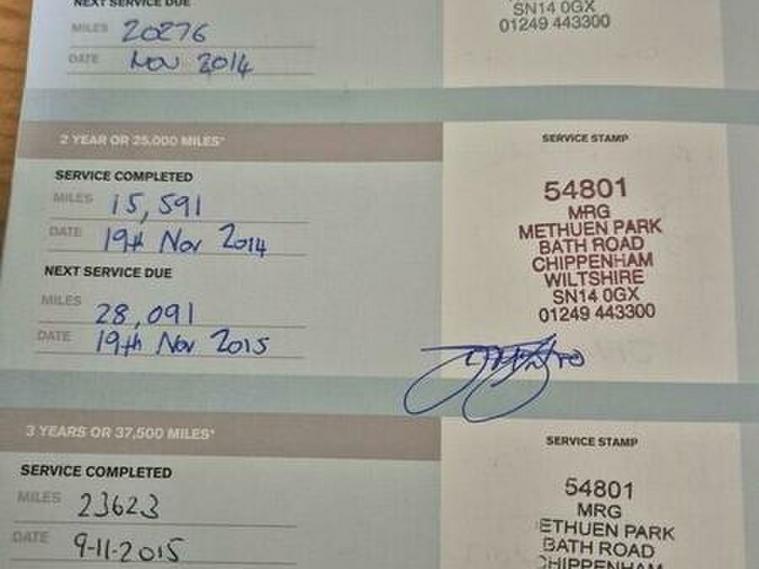 NEXT SERVICE DUE
MILES 20276
DATE Nov 2014
SN14 0GX
01249 443300
2 YEAR OR 25,000 MILES*
SERVICE COMPLETED
MILES 15,591
DATE 19th Nov 2014
NEXT SERVICE DUE
MILES 28,091
DATE 19th Nov 2015
SERVICE STAMP
54801
MRG
METHUEN PARK
BATH ROAD
CHIPPENHAM
WILTSHIRE
SN14 0GX
01249 443300
3 YEARS OR 37,500 MILES*
SERVICE COMPLETED
MILES 23623
DATE 9-11-2015
SERVICE STAMP
54801
MRG
ETHUEN PARK
BATH ROAD
CHIPPENHAM